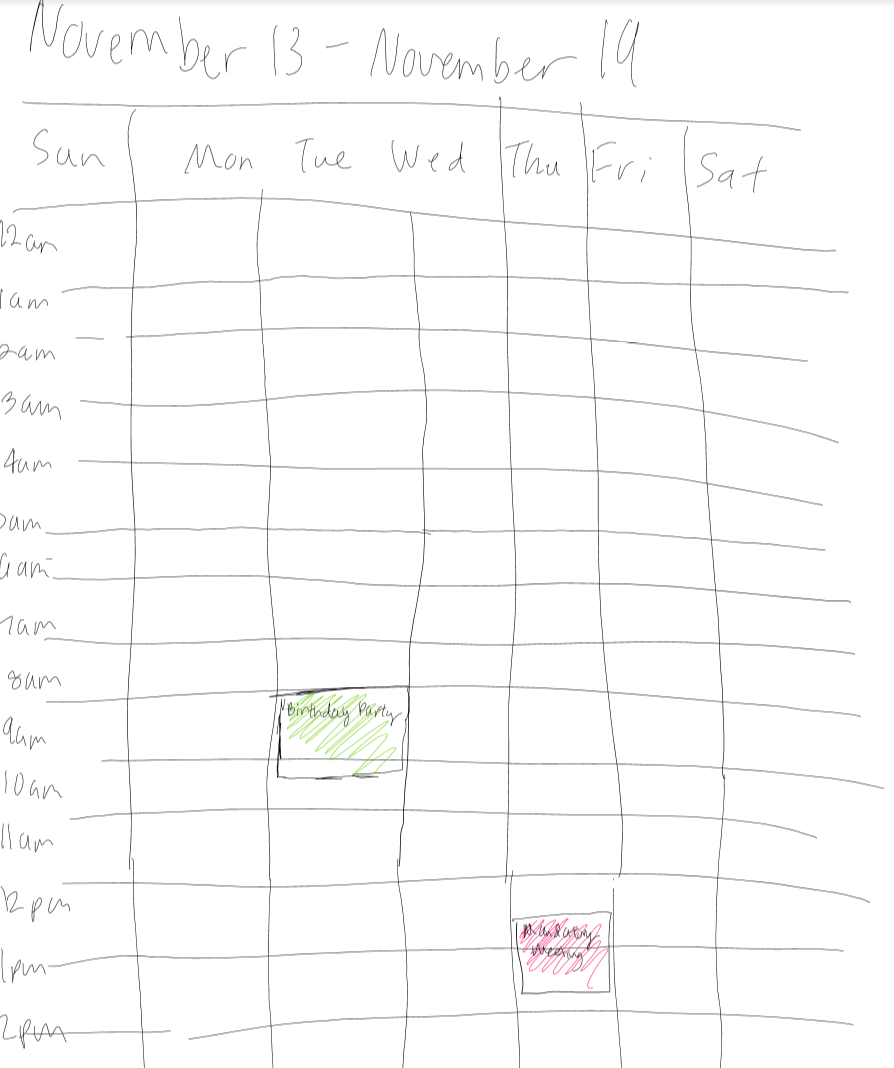 November 13 - November 19
Sun Mon Tue Wed Thu Fri Sat
12am
1am
2am
3am
4am
5am
6am
7am
8am
Birthday Party
9am
10am
11am
12pm
Mandatory
Meeting
1pm
2pm